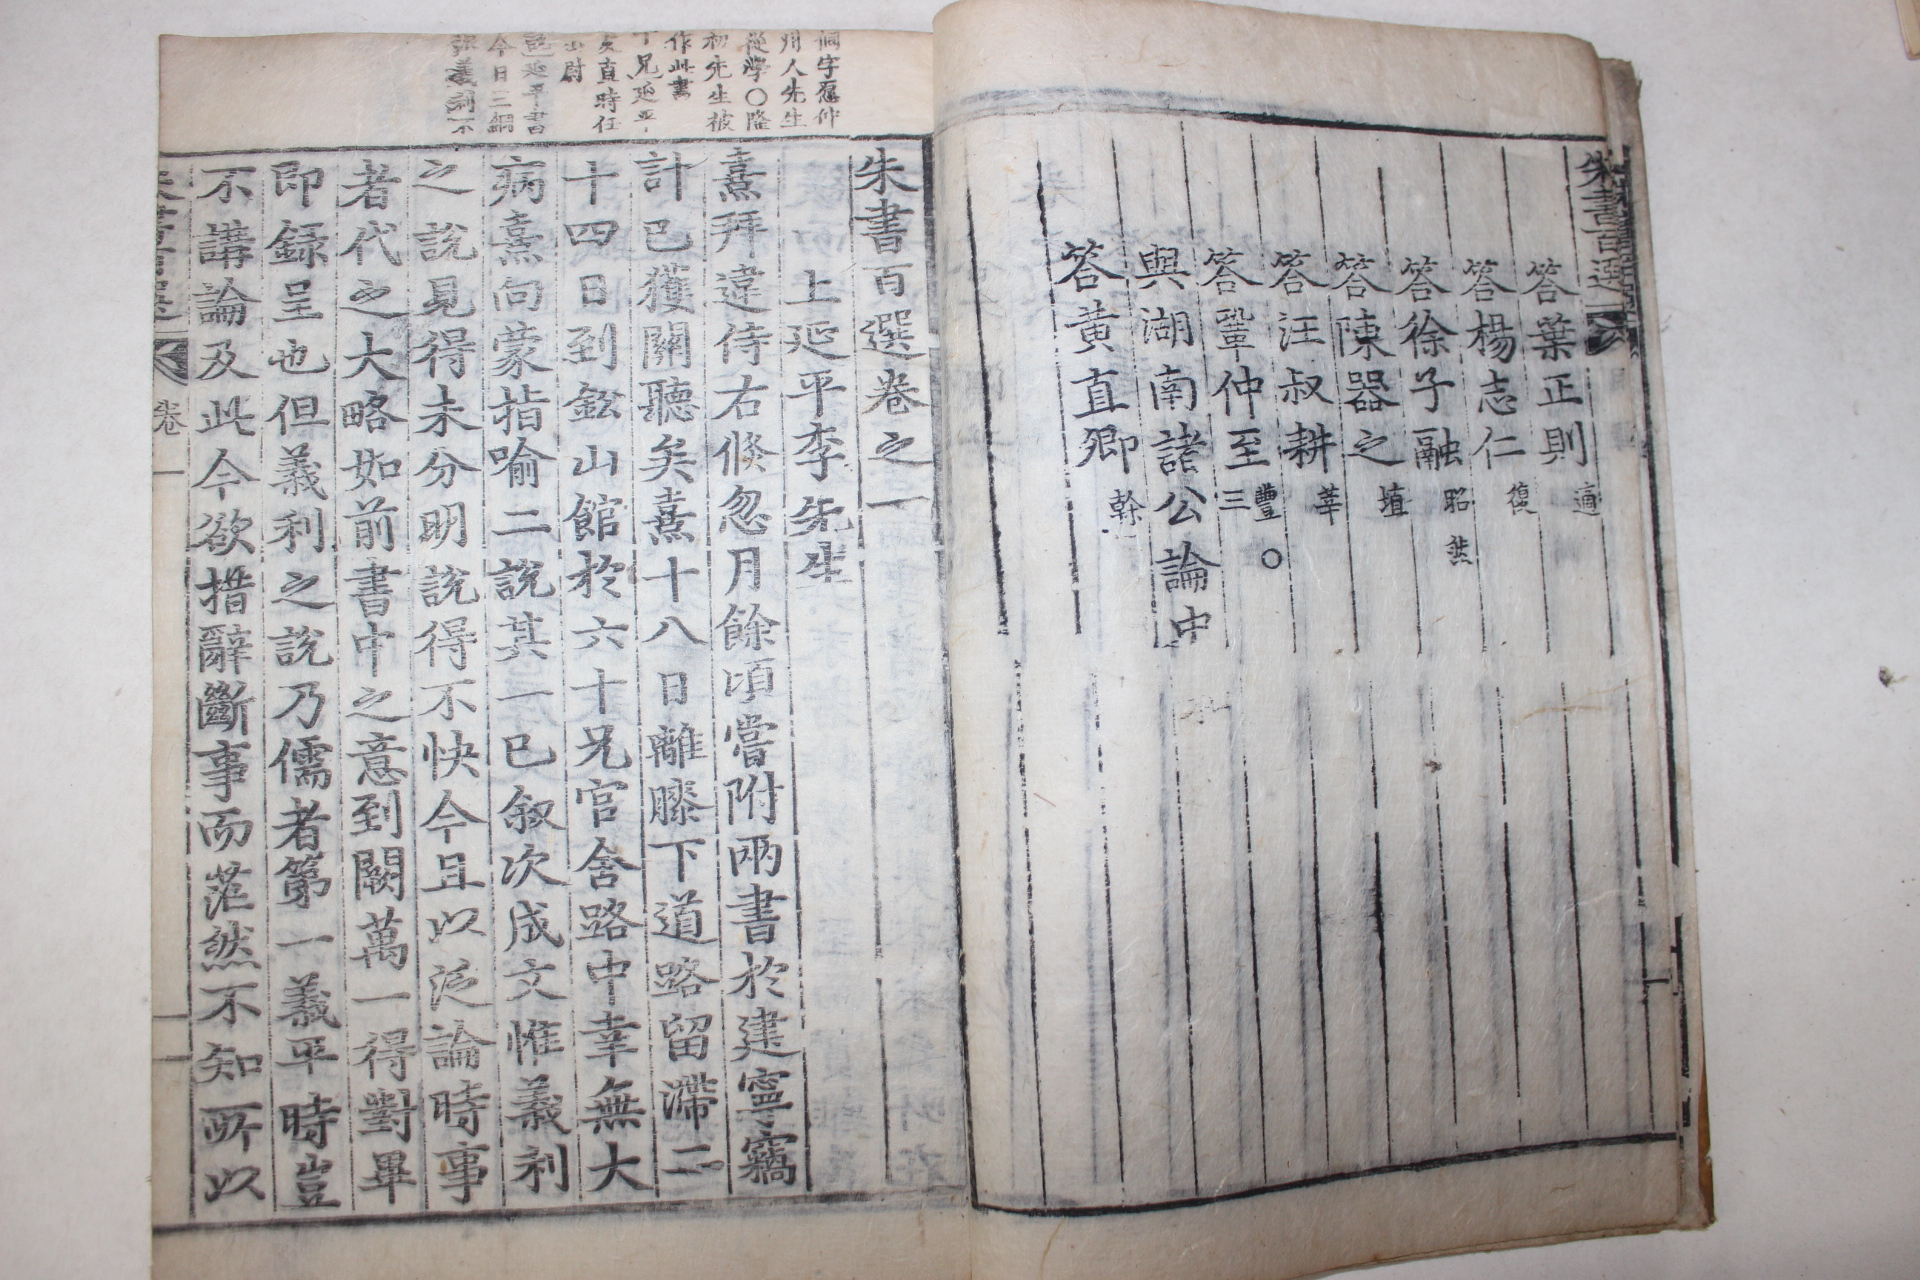 朱書百選
答葉正則適
答楊志仁復
答徐子融昭然
答陳器之埴
答汪叔耕莘
答鞏仲至豐○三
與湖南諸公論中
答黃直卿榦
侗字愿仲
州人先生
從學○隆
初先生被
作此書
丁兄延平
夫直時任
尉
延平書
今日三綱
義利不
朱書百選卷之一
上延平李先生
熹拜違侍右倏忽月餘頃嘗附兩書於建寧竊
計已獲關聽矣熹十八日離膝下道路留滯二
十四日到鉛山館於六十兄官舍路中幸無大
病熹向蒙指喻二說其一已叙次成文惟義利
之說見得未分明說得不快今且以泛論時事
者代之大略如前書中之意到闕萬一得對畢
即録呈也但義利之說乃儒者第一義平時豈
不講論及此今欲措辭斷事而茫然不知所以
卷一